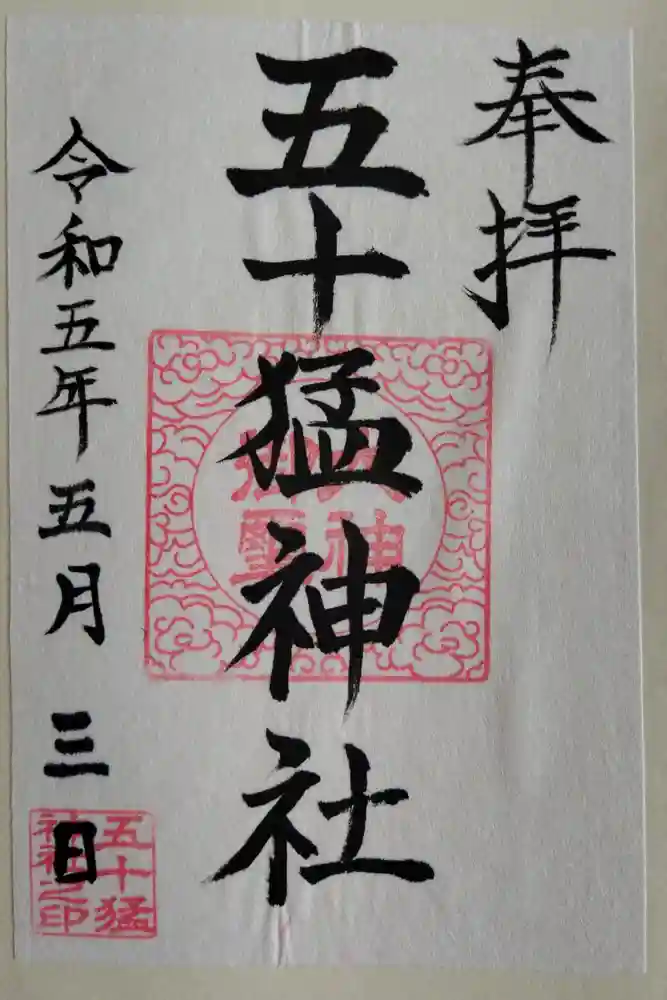 奉拝
五十猛神社
大神
御璽
令和五年五月三日
五十猛
神社之印